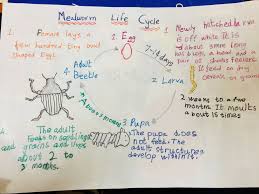 Mealworm Life Cycle
1. Female lays a
few hundred tiny oval
shaped eggs.
1. Egg
7-14 days
2. Newly hatched larva
is off white. It is
about 3mm long
has both a head and a
pair of
It feed on dry
cereals or grains.
2. Larva
2 weeks to a few
months. It moults
about 15 times
3. Pupa
3. The pupa does
not feed. The
adult structures
develop within it.
4. Adult
Beetle
4. The adult
feeds on seedlings
and grains and lives
about 2 to
3 months.